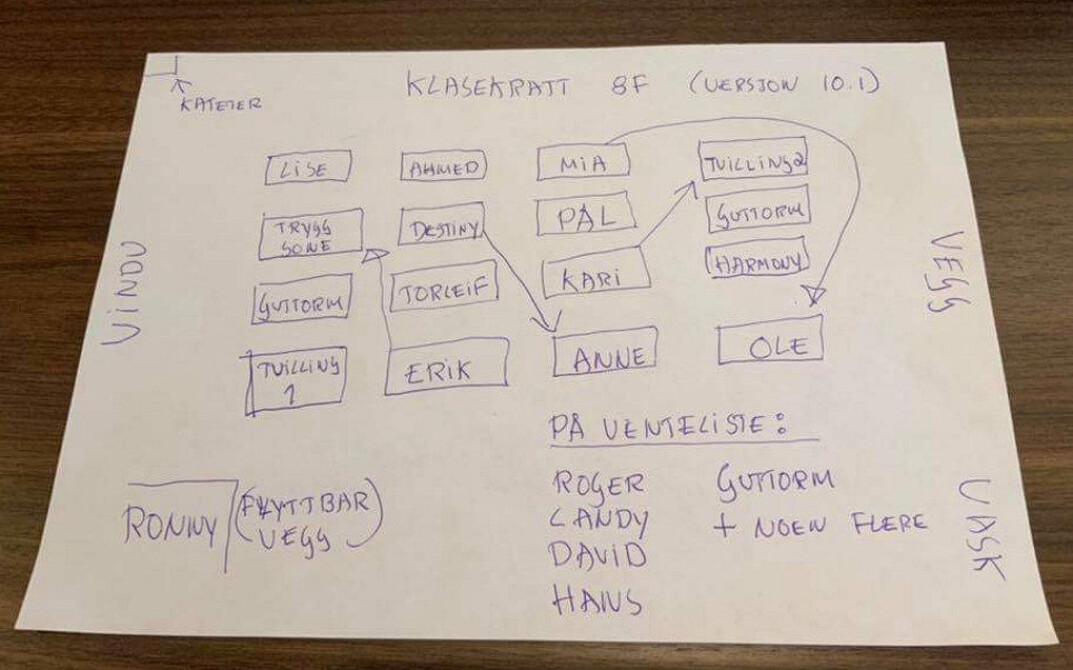 KLASEKRATT 8F (VERSJON 10.1)
KATETER
LISE AHMED MIA TVILLING 2
TRYGG SONE DESTINY PÅL GUTTORM
GUTTORM TORLEIF KARI HARMONY
TVILLING 1 ERIK ANNE OLE
VINDU
VEGG
VASK
PÅ VENTELISTE:
ROGER GUTTORM
CANDY + NOEN FLERE
DAVID
HANS
RONNY (FLYTTBAR VEGG)